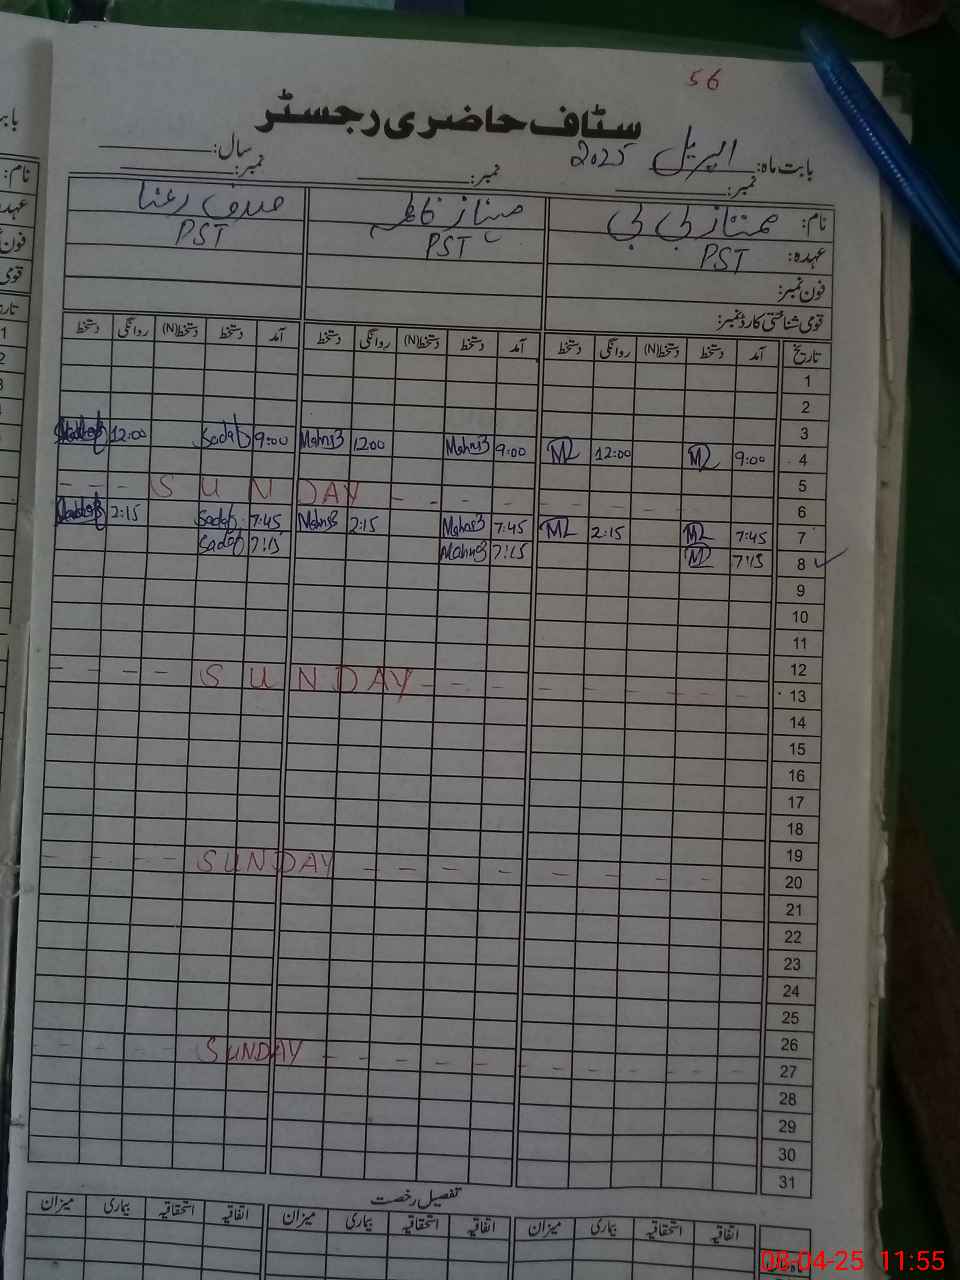 56
سٹاف حاضری رجسٹر
بابت ماہ: اپریل 2025 سال:
نمبر: نمبر: نمبر:
نام: ممتاز بی بی مہناز صدف
عہدہ: PST PST PST
فون نمبر:
قومی شناختی کارڈ نمبر:
تاریخ آمد دستخط دستخط(N) روانگی دستخط آمد دستخط دستخط(N) روانگی دستخط آمد دستخط دستخط(N) روانگی دستخط
1
2
3
4 9:00 12:00 9:00 Mahnaz 12:00 Mahnaz 9:00 Sadaf 12:00
5
6 SUNDAY
7 7:45 2:15 7:45 Mahnaz 2:15 Mahnaz 7:45 Sadaf 2:15
8 7:15 7:15 Mahnaz 7:15 Sadaf
9
10
11
12
13 SUNDAY
14
15
16
17
18
19
20 SUNDAY
21
22
23
24
25
26
27 SUNDAY
28
29
30
31
تفصیل رخصت
اتفاقیہ استحقاقیہ بیماری میزان اتفاقیہ استحقاقیہ بیماری میزان اتفاقیہ استحقاقیہ بیماری میزان
08-04-25 11:55